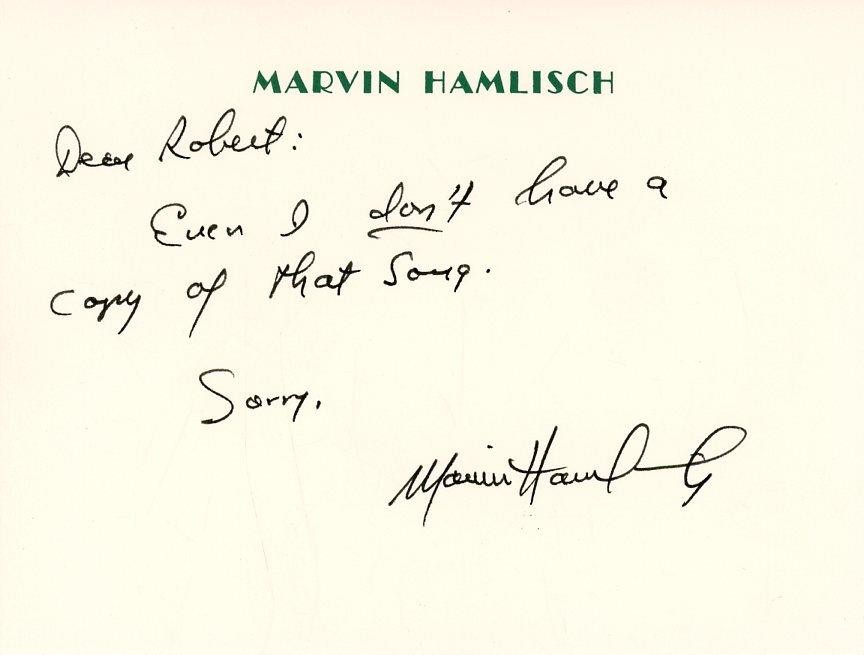 MARVIN HAMLISCH
Dear Robert:
Even I don't have a
copy of that song.
Sorry.
Marvin Hamlisch